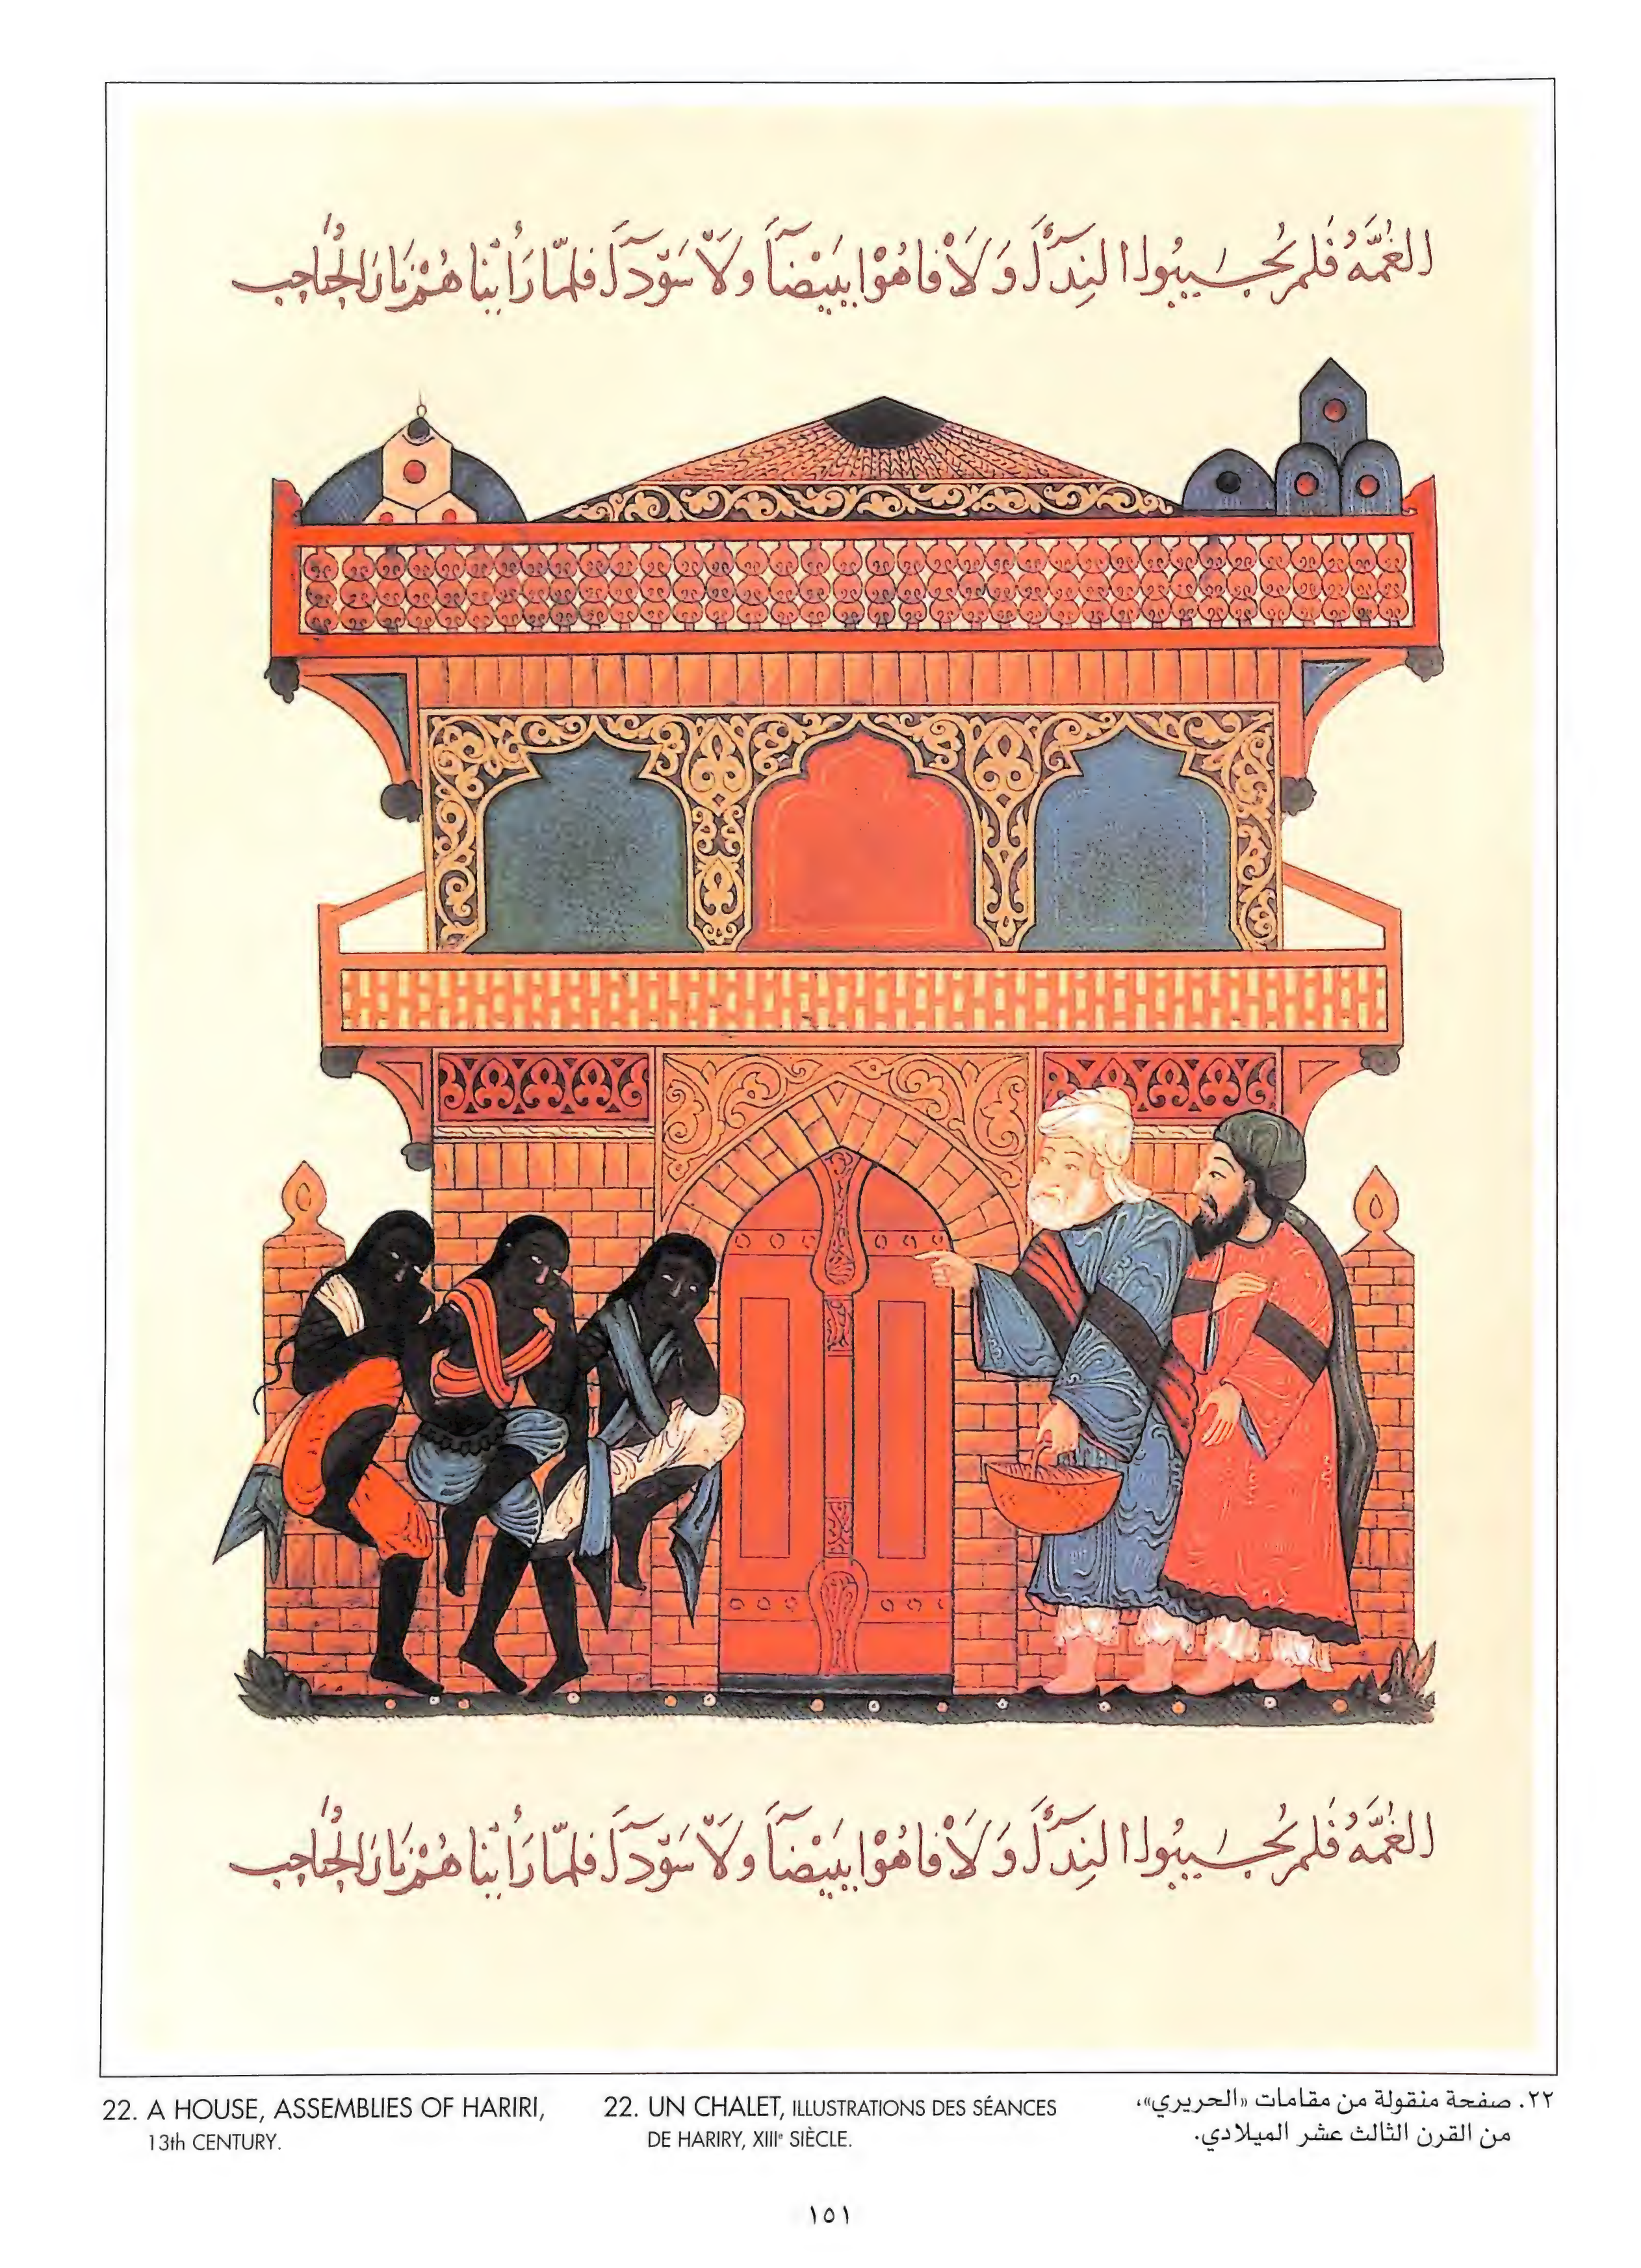 الغُمَّهُ فَلَم يُجِيبُوا النِدَآءَ وَلَا فَاهُوْا بِبَيْضَآءَ وَلَا سَوْدَآءَ فَلَمَّا رَأَيْنَا هُمْ نَارَ الحُبَاحِبِ
الغُمَّهُ فَلَم يُجِيبُوا النِدَآءَ وَلَا فَاهُوْا بِبَيْضَآءَ وَلَا سَوْدَآءَ فَلَمَّا رَأَيْنَا هُمْ نَارَ الحُبَاحِبِ
22. A HOUSE, ASSEMBLIES OF HARIRI,
13th CENTURY.
22. UN CHALET, ILLUSTRATIONS DES SÉANCES
DE HARIRY, XIIIe SIÈCLE.
٢٢. صفحة منقولة من مقامات «الحريري»،
من القرن الثالث عشر الميلادي.
١٥١